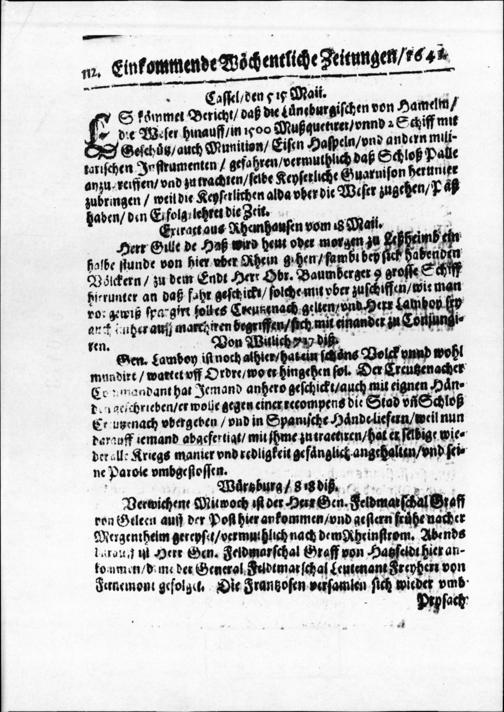 112. Einkommende Wöchentliche Zeitungen/1641.
Cassel/den 5 15 Maii.
ES kömmet Bericht/ daß die Lüneburgischen von Hameln/
die Weser hinauff/in 1500 Mußquetirer/vnnd 2 Schiff mit
Geschütz/auch Munition/ Eisen Haspeln/vnd andern mili-
tarischen Instrumenten / gefahren/vermuthlich daß Schloß Palle
anzugreiffen/vnd zu trachten/selbe Keyserliche Guarnison herunter
zubringen / weil die Keyserlichen alda vber die Weser zugehen/ Päß
haben/ den Erfolg lehret die Zeit.
Extract aus Rheinhausen vom 18 Maii.
Herr Gille de Haß wird heut oder morgen zu ein
halbe stunde von hier vber Rhein gehen/ sambt bey sich habenden
Völckern / zu dem Endt Herr Obr. Baumberger 9 grosse Schiff
hierunter an daß fahr geschickt/ solche mit vber zuschiffen/ wie man
vor gewiß spargirt solles Creutzenach gelten/vnd Herr Lamboy sey
auch auff marchiren begriffen/sich mit einander zu Conjungi-
ren.
Von Witlich 7 17 diß.
Gen. Lamboy ist noch alhier/hat ein schöns Volck vnnd wohl
mundirt/ wartet vff Ordre/wo er hingehen sol. Der Creutzenacher
Commandant hat Jemand anhero geschickt/auch mit eignen Hän-
den geschrieben/er wolle gegen einer recompens die Stad vñ Schloß
Creutzenach vbergeben / vnd in Spanische Hände liefern/weil nun
darauff iemand abgefertigt/ mit ihme zu tractiren/hat er selbige wie-
der alle Kriegs manier vnd redligkeit gefänglich angehalten/vnd sei-
ne Parole vmbgestossen.
Würtzburg / 8 18 diß.
Verwichene Mitwoch ist der Herr Gen. Feldmarschal Graff
von Geleen auff der Post hier ankommen/vnd gestern frühe nacher
Mergentheim gereyset/vermuthlich nach dem Rheinstrom. Abends
darauff ist Herr Gen. Feldmarschal Graff von Hatzfeldt hier an-
kommen/deme der General Feldtmarschal Leutenant Freyherr von
Fernemont gefolget. Die Frantzosen versamlen sich wieder vmb
Prysach